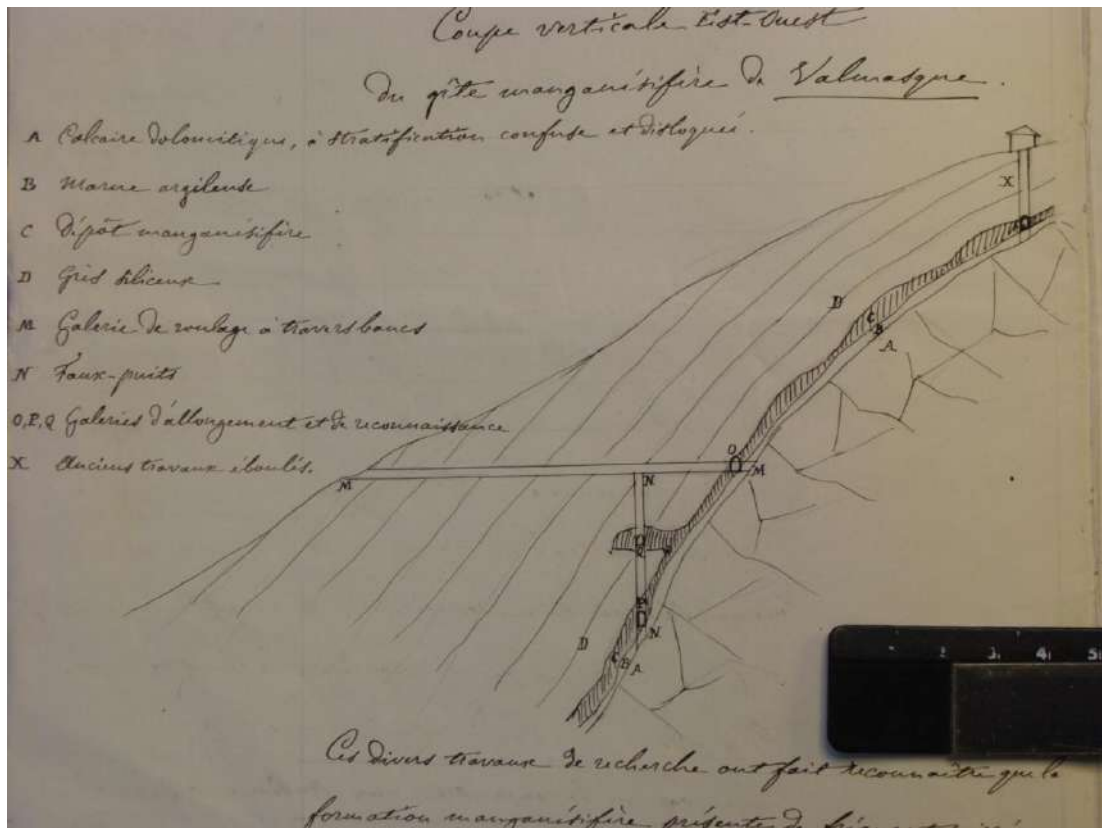 Coupe verticale Est-Ouest
du gîte manganésifère de Valmasque.
A Calcaire dolomitique, à stratification confuse et disloqué.
B Marne argileuse
C Dépôt manganésifère
D Grès siliceux
M Galerie de roulage à travers bancs
N Faux-puits
O, P, Q Galeries d'allongement et de reconnaissance
X Anciens travaux éboulés.
X
D
C
B
A
O
M
M
N
N
D
C
B
A
3 4 5
Ces divers travaux de recherche ont fait reconnaître que la
formation manganésifère présente de